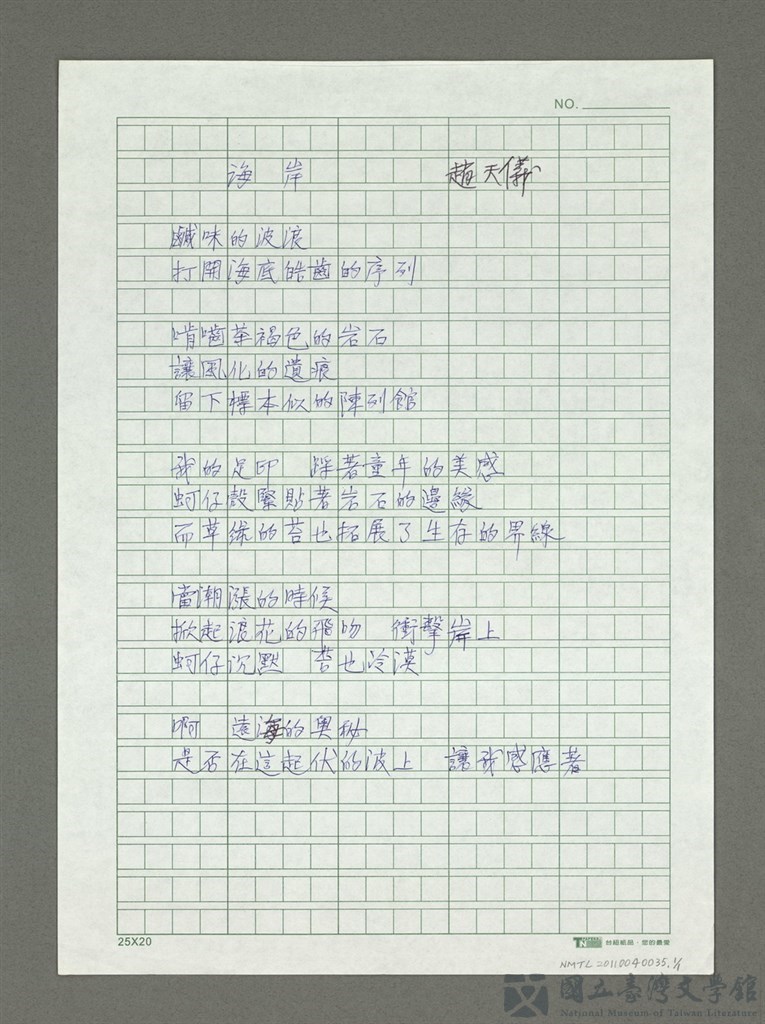 NO.
海岸 趙天儀
鹹味的波浪
打開海底皓齒的序列
啃嚙茶褐色的岩石
讓風化的遺痕
留下標本似的陳列館
我的足印 踩著童年的美感
蚵仔殼緊貼著岩石的邊緣
而草綠的苔也拓展了生存的界線
當潮漲的時候
掀起浪花的飛吻 衝擊岸上
蚵仔沉默 苔也冷漠
啊 遠海的奧秘
是否在這起伏的波上 讓我感應著
25X20
台紙紙品‧您的最愛
NMTL 20110040035.1/1
國立臺灣文學館
National Museum of Taiwan Literature